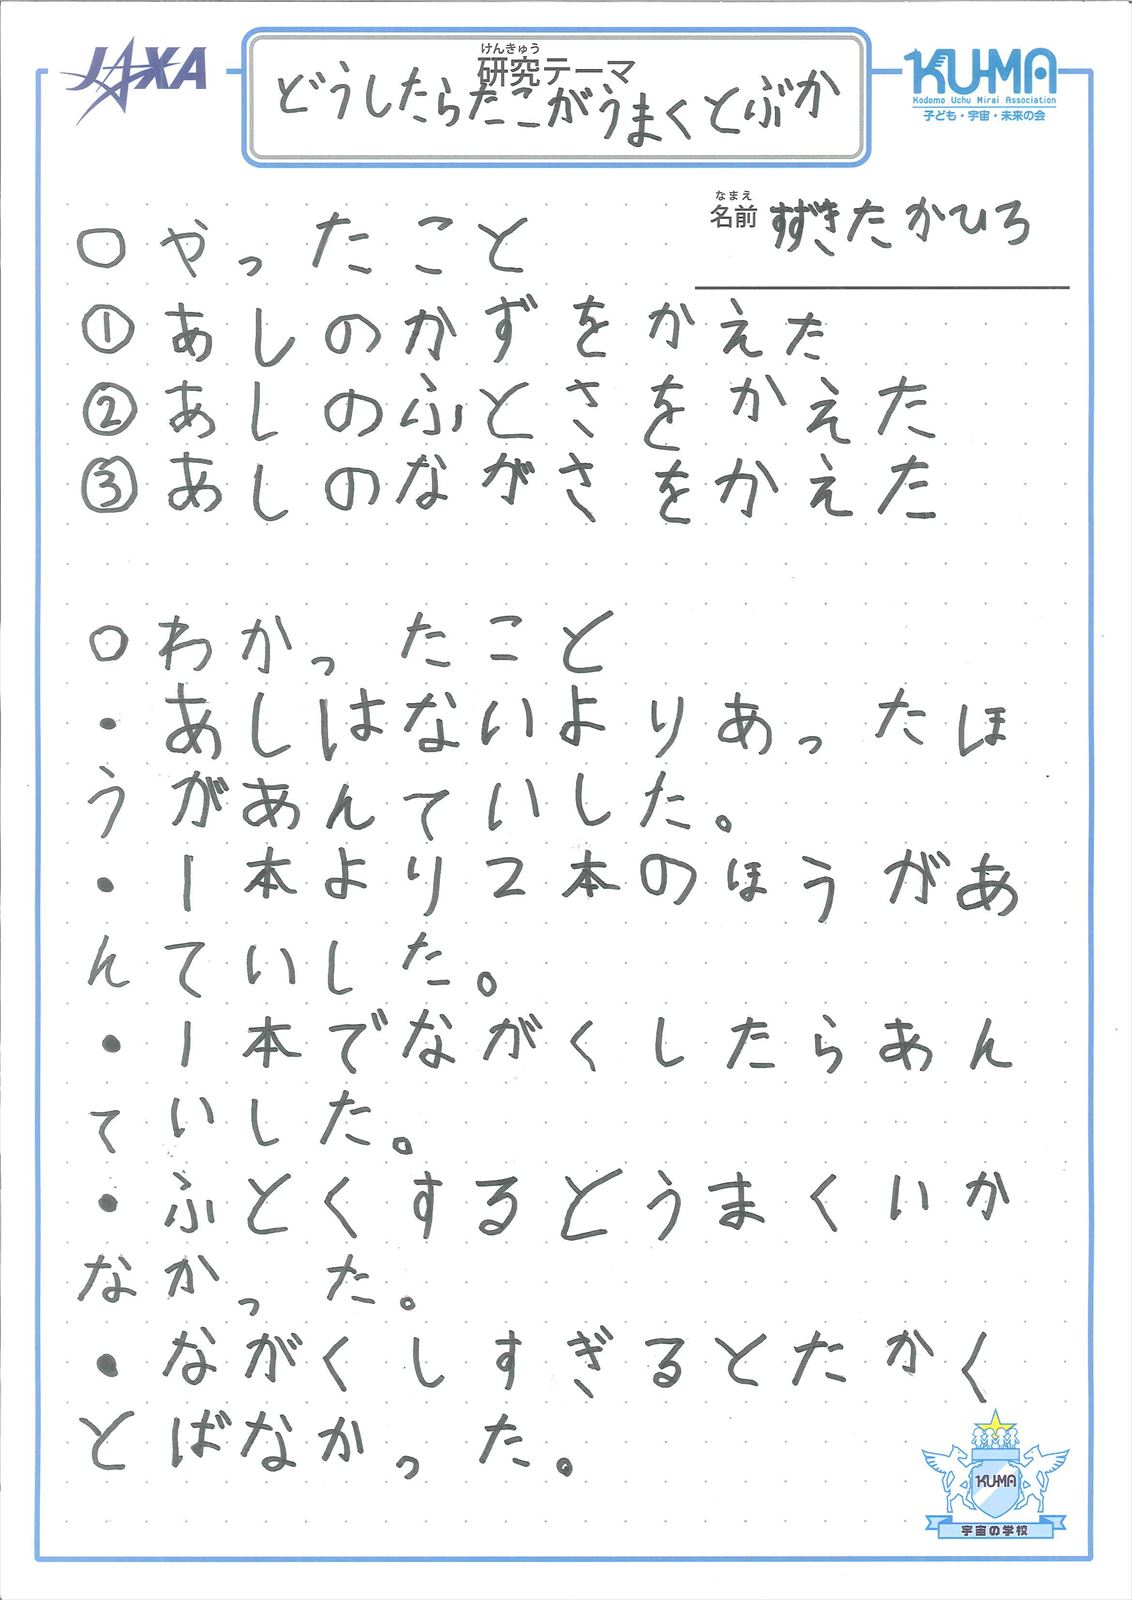 JAXA
けんきゅう
研究テーマ
どうしたらたこがうまくとぶか
KU-MA
Kodomo Uchu Mirai Association
子ども・宇宙・未来の会
なまえ
名前 すずきたかひろ
○やったこと
①あしのかずをかえた
②あしのふとさをかえた
③あしのながさをかえた
○わかったこと
・あしはないよりあったほ
うがあんていした。
・1本より2本のほうがあ
んていした。
・1本でながくしたらあん
ていした。
・ふとくするとうまくいか
なかった。
・ながくしすぎるとたかく
とばなかった。
KU-MA
宇宙の学校